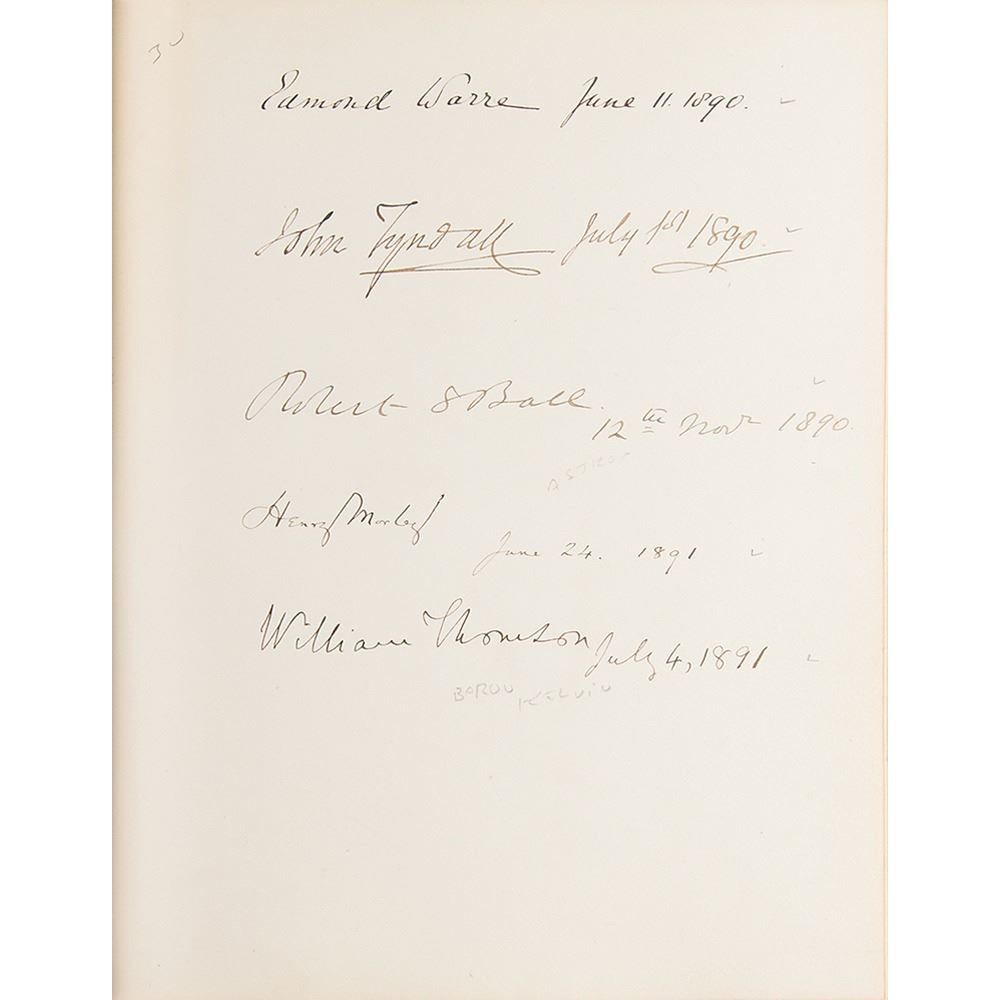 30
Edmond Warre June 11. 1890.
John Tyndall July 1st 1890.
Robert S Ball.
12th Novr 1890.
ASTRO
Henry Morley
June 24. 1891
William Thomson July 4, 1891
BARON KELVIN